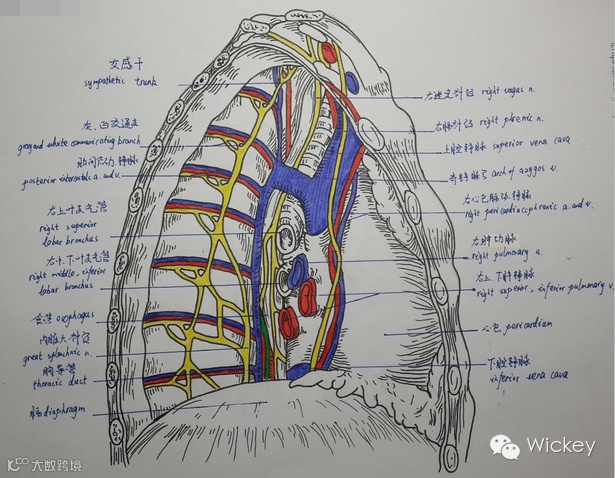 交感干
sympathetic trunk
灰、白交通支
grey and white communicating branch
肋间后动、静脉
posterior intercostal a. and v.
右上叶支气管
right superior
lobar bronchus
右中、下叶支气管
right middle, inferior
lobar bronchus
食管 esophagus
内脏大神经
great splanchnic n.
胸导管
thoracic duct
膈 diaphragm
右迷走神经 right vagus n.
右膈神经 right phrenic n.
上腔静脉 superior vena cava
奇静脉弓 arch of azygos v.
右心包膈动、静脉
right pericardiacophrenic a. and v.
右肺动脉
right pulmonary a.
右上、下肺静脉
right superior, inferior pulmonary v.
心包 pericardium
下腔静脉
inferior vena cava
Wickey
大数跨境